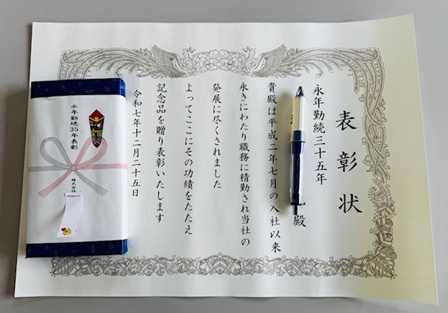 表彰状
永年勤続三十五年
殿
貴殿は平成二年七月の入社以来
永きにわたり職務に精勤され当社の
発展に尽くされました
よってここにその功績をたたえ
記念品を贈り表彰いたします
令和七年十二月二十五日
永年勤続35年表彰
株式会社